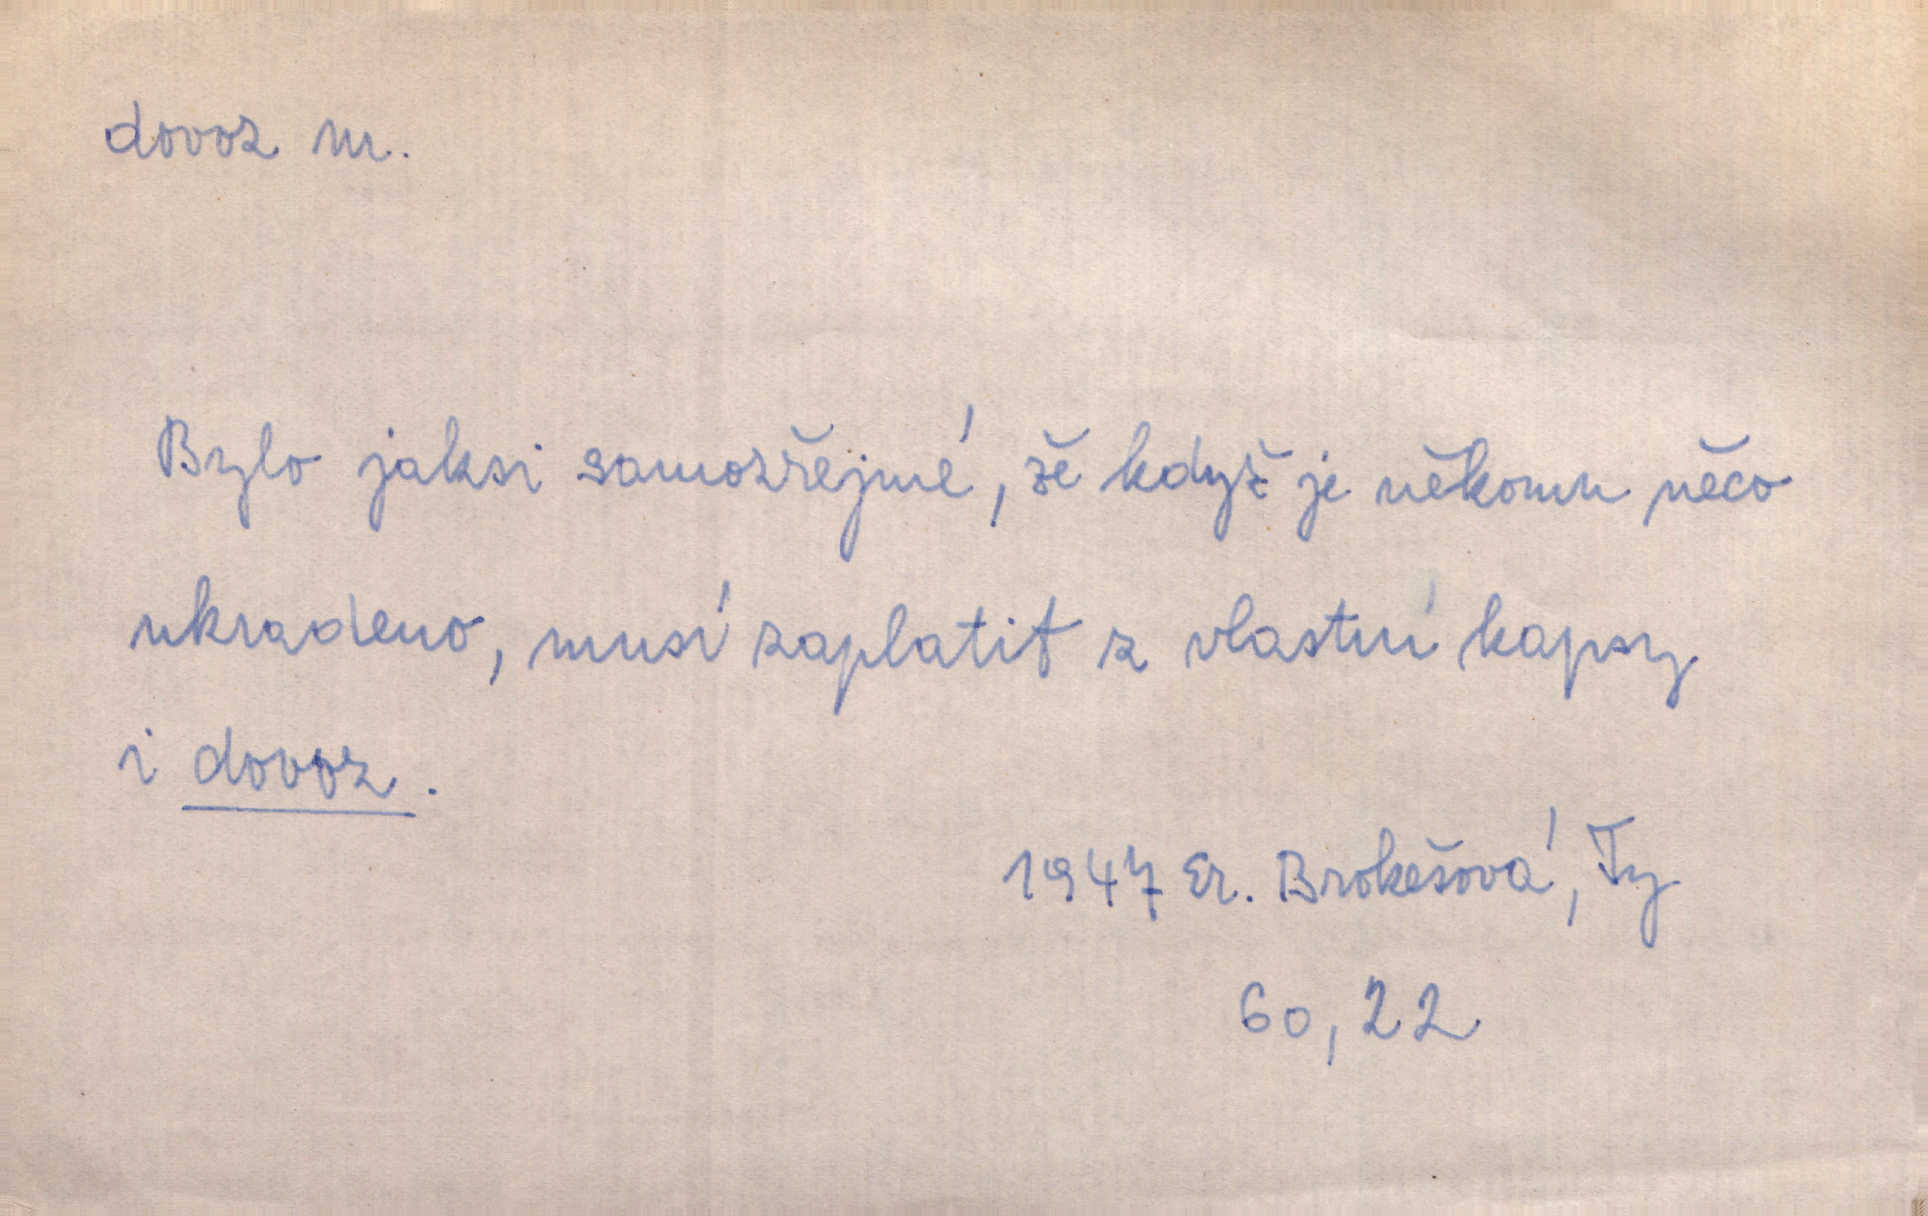 dovoz m.
Bylo jaksi samozřejmé, že když je někomu něco
ukradeno, musí zaplatit z vlastní kapsy
i dovoz.
1947 Er. Brokešová, Ty
60, 22